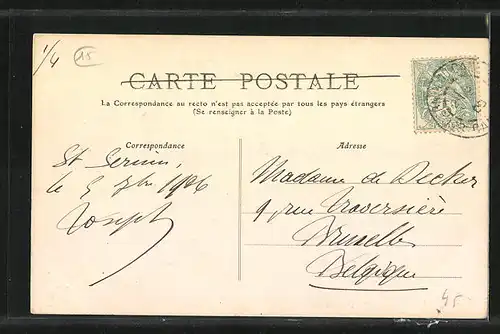 1/4
15
CARTE POSTALE
La Correspondance au recto n'est pas acceptée par tous les pays étrangers
(Se renseigner à la Poste)
Correspondance
St Sernin,
le 5 7bre 1906
Joseph
Adresse
Madame de Decker
9, rue Traversière
Bruxelles
Belgique
45